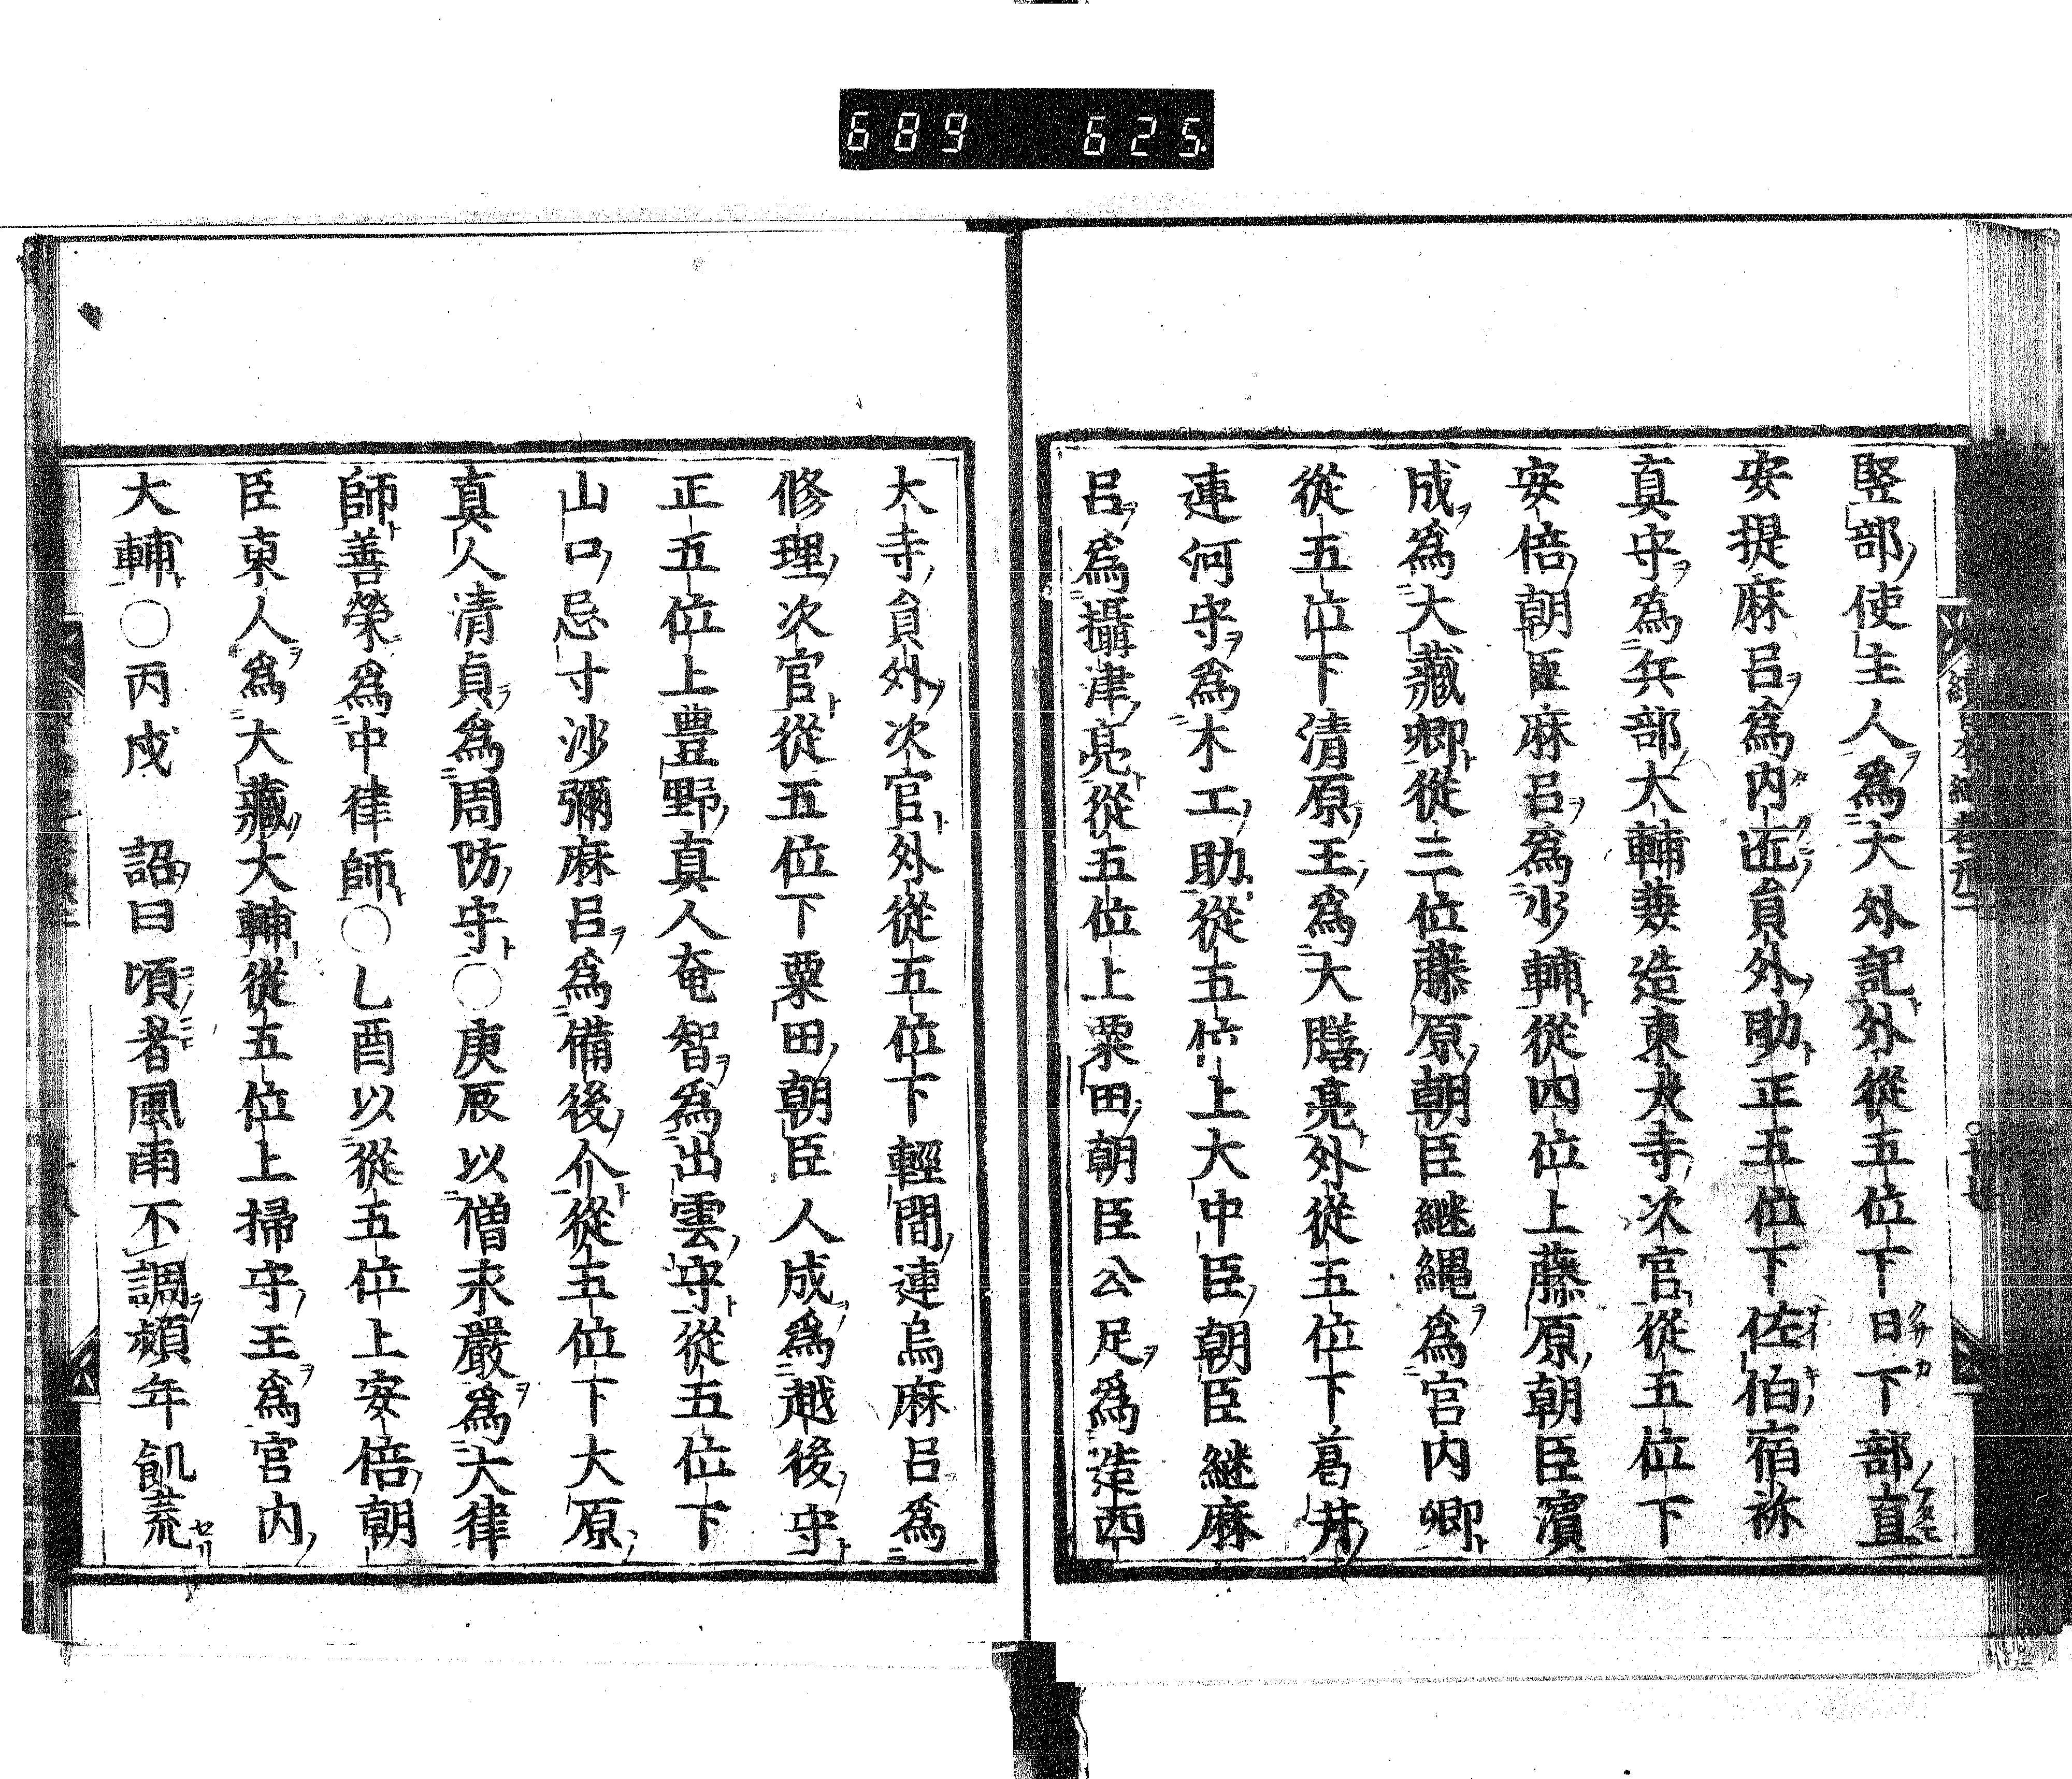 689 625.
竪部使主人爲大外記外從五位下日下部直
安提麻呂爲内匠員外助正五位下佐伯宿祢
真守爲兵部大輔兼造東大寺次官從五位下
安倍朝臣麻呂爲少輔從四位上藤原朝臣濱
成爲大藏卿從三位藤原朝臣継縄爲宮内卿
從五位下清原王爲大膳亮外從五位下葛井
連河守爲木工助從五位上大中臣朝臣継麻
呂爲攝津亮從五位上粟田朝臣公足爲造西
大寺員外次官外從五位下輕間連烏麻呂爲
修理次官從五位下粟田朝臣人成爲越後守
正五位上豊野真人奄智爲出雲守從五位下
山口忌寸沙彌麻呂爲備後介從五位下大原
真人清貞爲周防守〇庚辰以僧永嚴爲大律
師善榮爲中律師〇乚酉以從五位上安倍朝
臣東人爲大藏大輔從五位上掃守王爲宮内
大輔〇丙戍 詔曰頃者風雨不調頻年飢荒